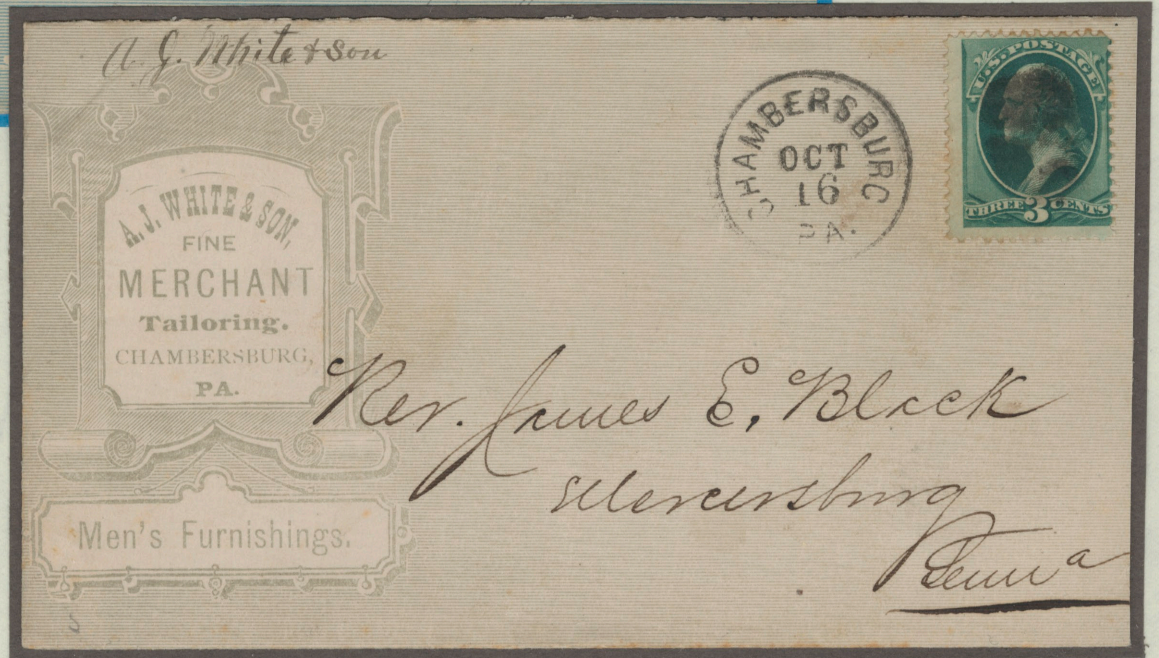 A. J. White & Son
A. J. WHITE & SON,
FINE
MERCHANT
Tailoring.
CHAMBERSBURG,
PA.
Men's Furnishings.
CHAMBERSBURG
OCT
16
PA.
U.S. POSTAGE
THREE 3 CENTS
Rev. James E. Black
Mercersburg
Penna